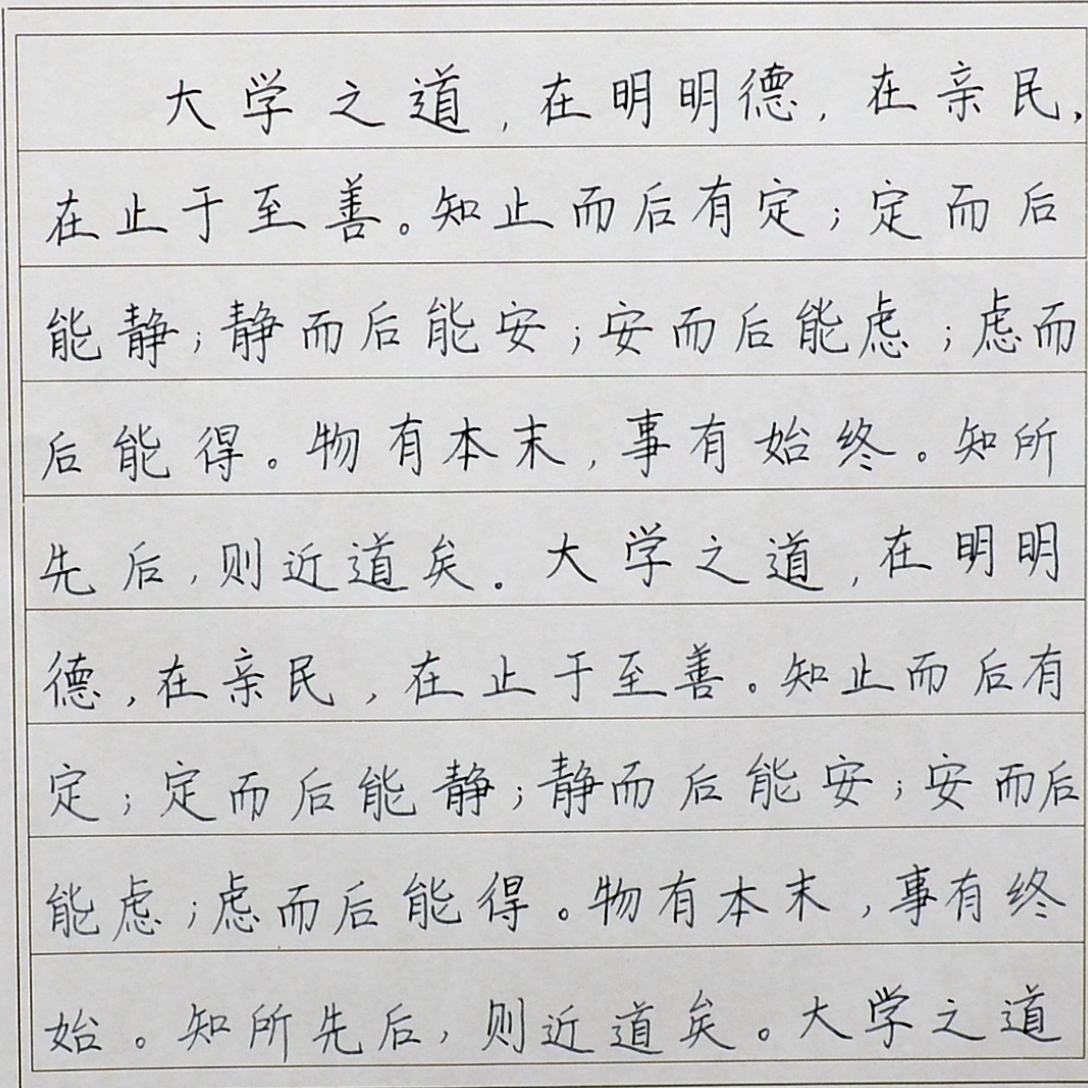 大学之道，在明明德，在亲民，
在止于至善。知止而后有定；定而后
能静；静而后能安；安而后能虑；虑而
后能得。物有本末，事有始终。知所
先后，则近道矣。大学之道，在明明
德，在亲民，在止于至善。知止而后有
定；定而后能静；静而后能安；安而后
能虑；虑而后能得。物有本末，事有终
始。知所先后，则近道矣。大学之道